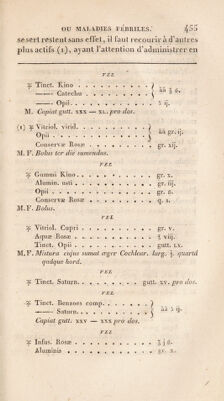 OU MALADIES FÉBRILES. 455
se sert restent sans effet, il faut recourir à d'autres
plus actifs (1), ayant l'attention d'administrer en
VEL
℞ Tinct. Kino . . . . . . . . } āā ʒ ß.
—— Catechu . . . . . .
—— Opii . . . . . . . . . ʒ ij.
M. Capiat gutt. xxx — xl. pro dos.
(1) ℞ Vitriol. virid. . . . . . . } āā gr. ij.
Opii . . . . . . . . . .
Conservæ Rosæ . . . . . gr. xij.
M. F. Bolus ter die sumendus.
VEL
℞ Gummi Kino . . . . . . gr. x.
Alumin. usti . . . . . . gr. iij.
Opii . . . . . . . . . . gr. ß.
Conservæ Rosæ . . . . . gr. x.
M. F. Bolus.
VEL
℞ Vitriol. Cupri . . . . . . gr. v.
Aquæ Rosæ . . . . . . . ℥ viij.
Tinct. Opii . . . . . . . gutt. lx.
M. F. Mistura cujus sumat æger Cochlear. larg. j. quartâ
quâque horâ.
VEL
℞ Tinct. Saturn. . . . . . . gutt. xv. pro dos.
VEL
℞ Tinct. Benzoes comp. . . . } āā ʒ ij.
—— Saturn. . . . . . .
Capiat gutt. xxv — xxx pro dos.
VEL
℞ Infus. Rosæ . . . . . . .
Aluminis . . . . . . . . gr. x.